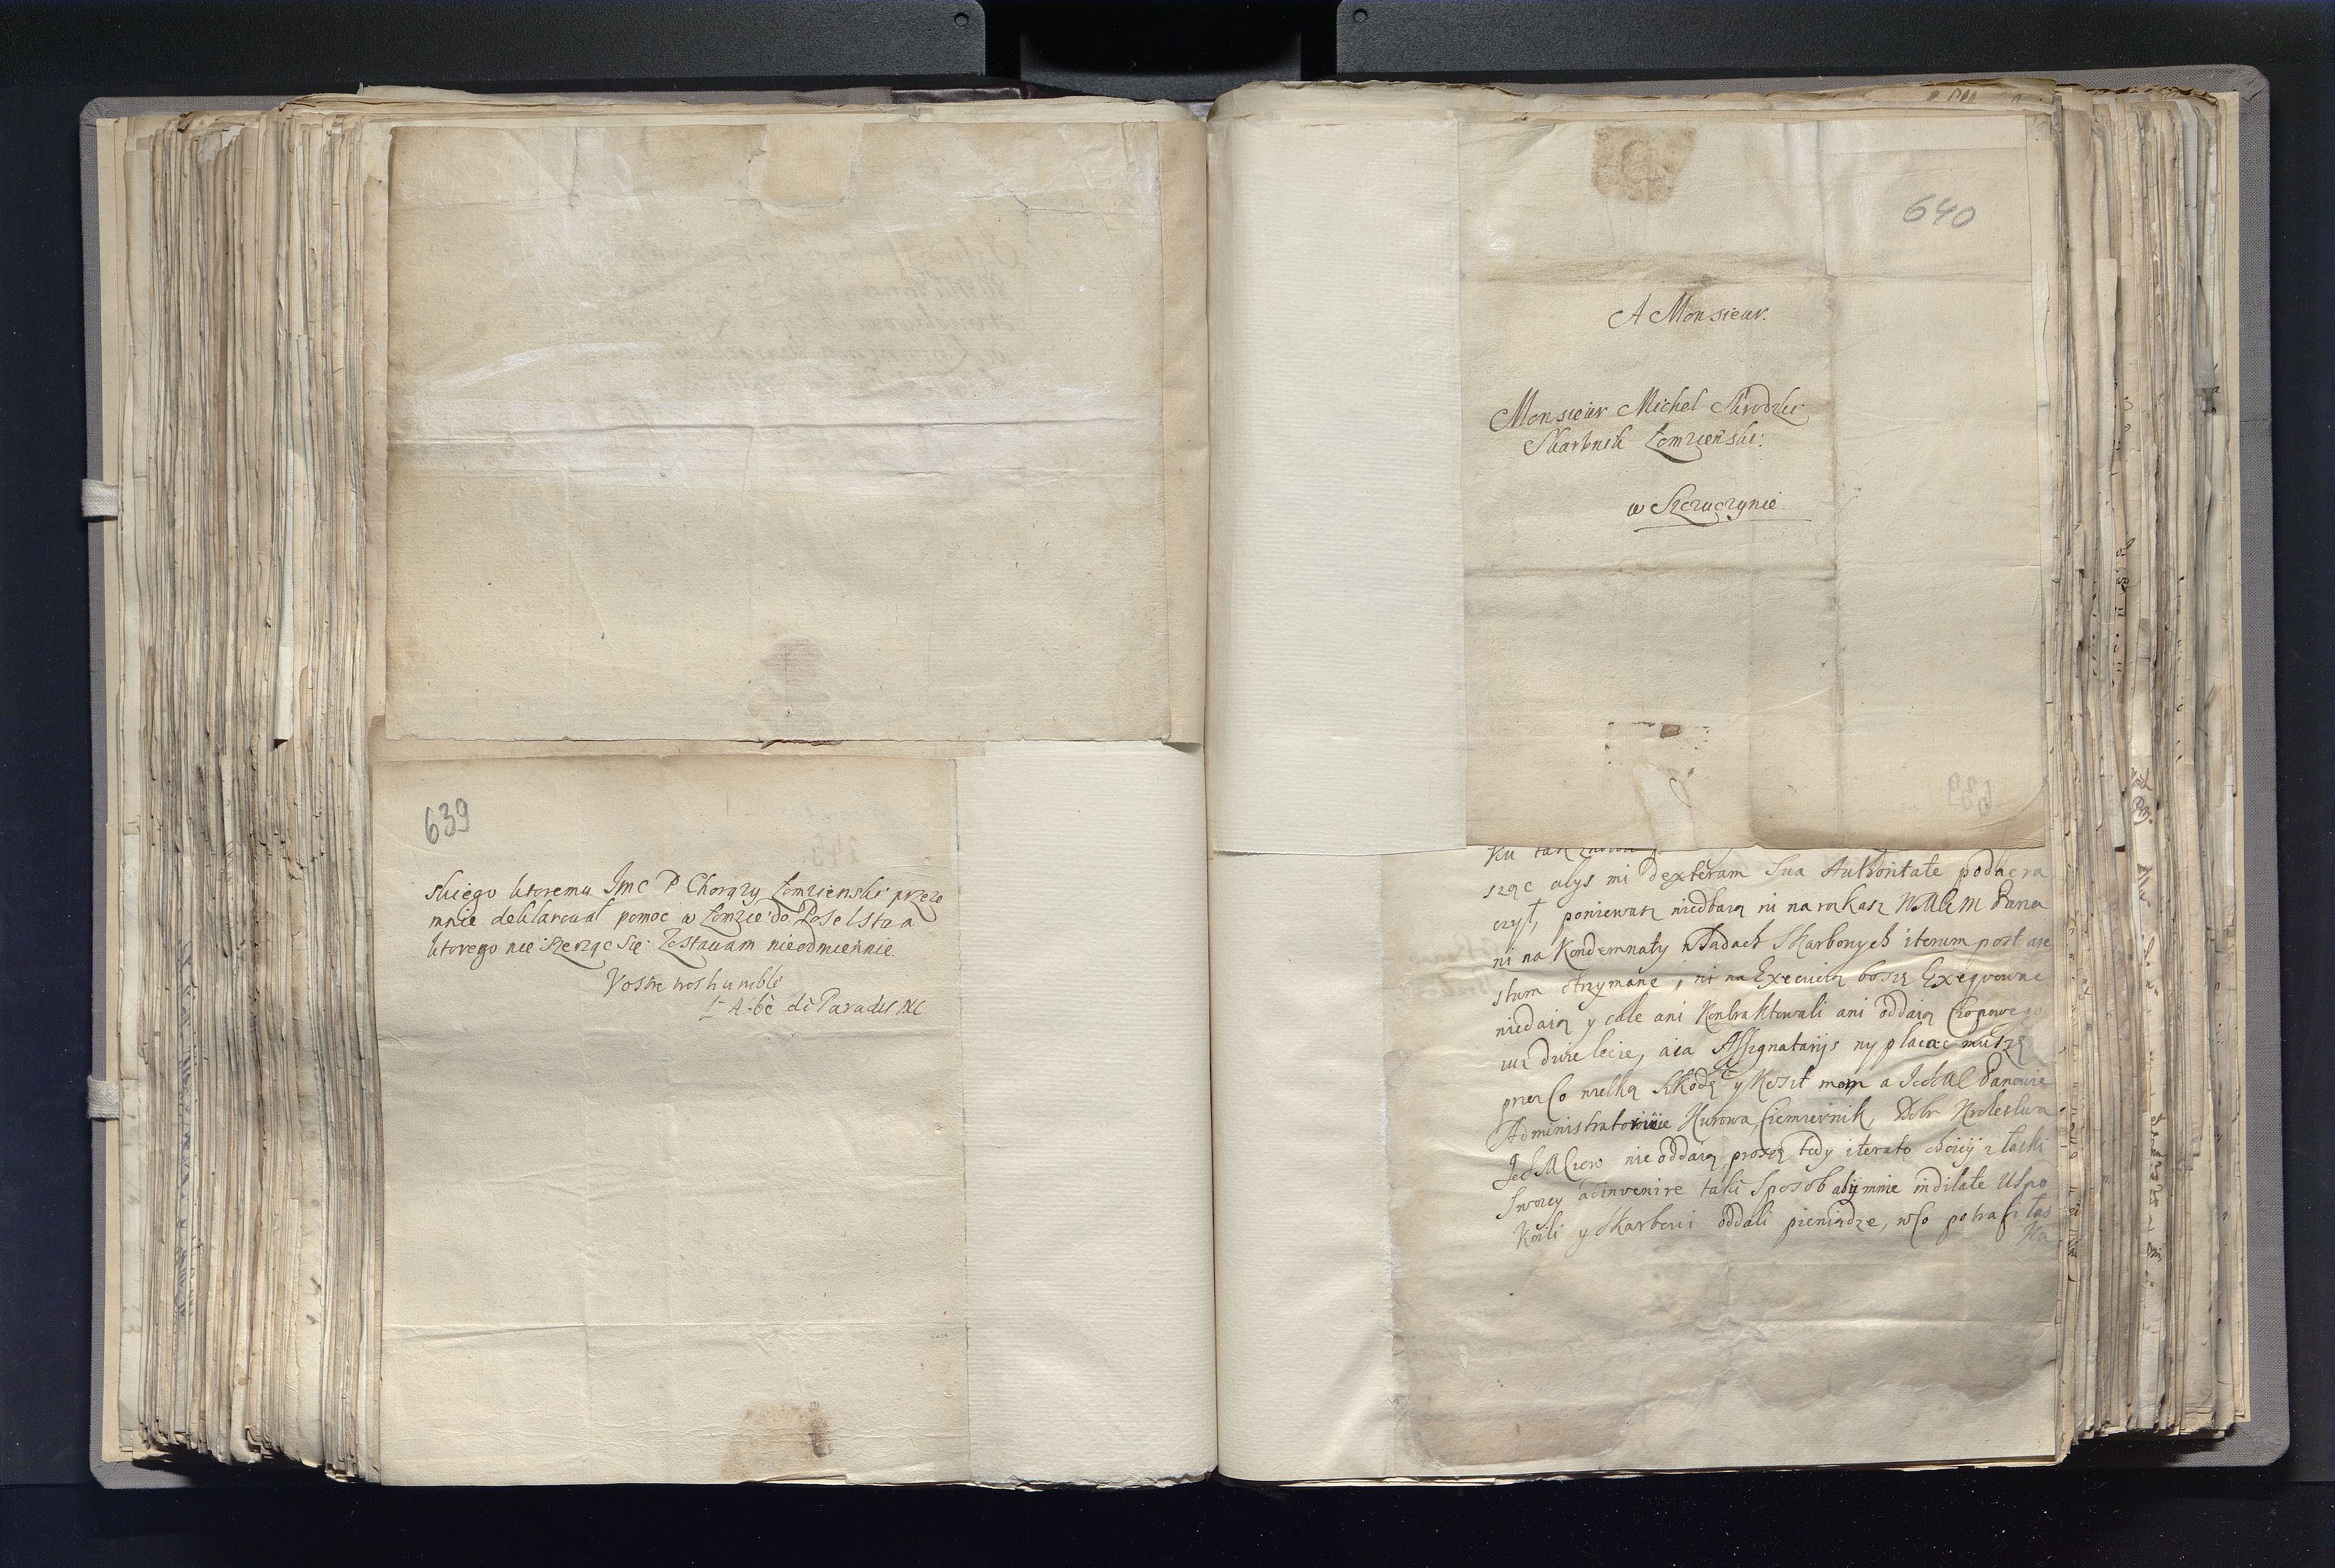 639
skiego ktoremu Jmc P Chorąży Łomzienski przeze
mnie deklarował pomoc w Łomzie do Poselstwa
ktorego nie szerząc się Zostawam nieodmiennie.
Vostre tres humble
L'Abbè de Paradis MC
640
A Monsieur.
Monsieur Michel Skrodzki
Skarbnik Łomzienski:
w Szczuczynie.
ku tak znowu
sząc abys mi dexteram Sua Authoritate podac ra
czył, poniewasz niedbaią ni na rozkasz WMM Pana
ni na Kondemnaty w Sądach Skarbowych iterum post are
stum otrzymane, ni na Execucią bo się Exeqvowac
niedaią y cale ani Kontraktowali ani oddaią Czopowego
iuz dwie lecie, a ia Assignatarijs wypłacac muszę
przez Co wielką szkodę y Koszt mam a Ichmc Panowie
Administratorowie Kurowa, Ciemiernik, Dobr Krolestwa
JchMCiow nie oddaią, proszę tedy iterato chciey z łaski
Swoiey adinvenire taki Sposob aby mnie indilate Uspo
Koili y Skarbowi oddali pieniądze, w Co potrafi łas
Ka